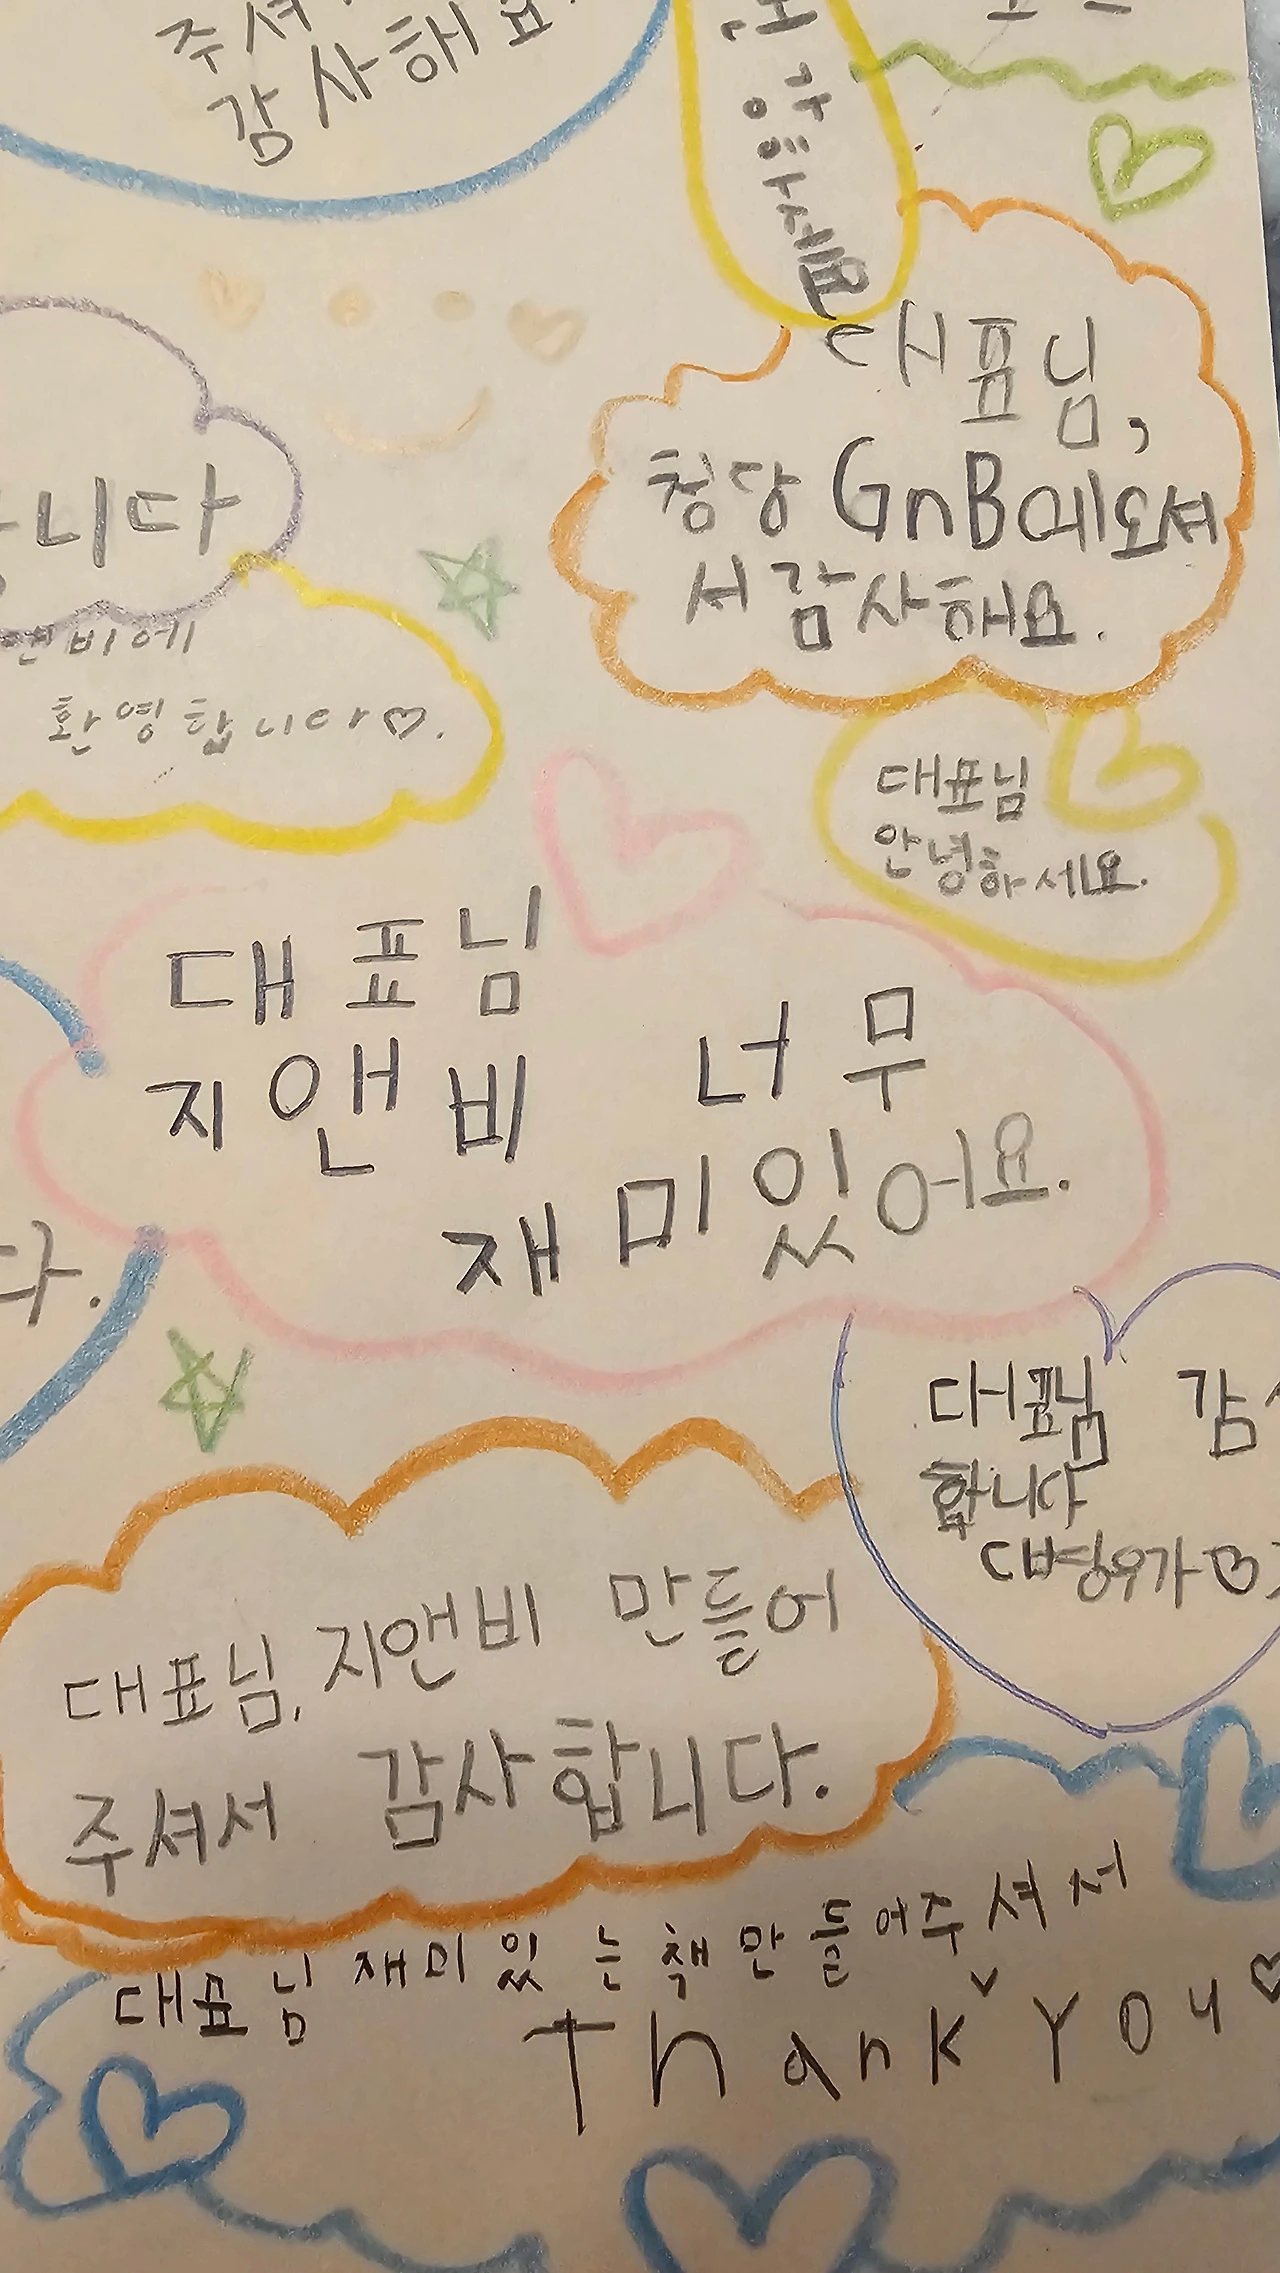 감사해요.
대표님,
청당 GnB에오셔
서 감사해요.
니다
비에
환영합니다♡.
대표님
안녕하세요.
대표님
지앤비 너무
재미있어요.
다.
대표님 감
합니다
대표님, 지앤비 만들어
주셔서 감사합니다.
대표님 재미있는책만들어주셔서
Thank You♡